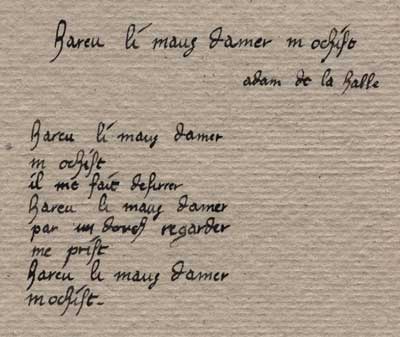 Hareu li maus damer m ochist
adam de la halle
Hareu li maus damer
m ochist
il me fait desirrer
Hareu li maus damer
par un douch regarder
me prist
Hareu li maus damer
m ochist